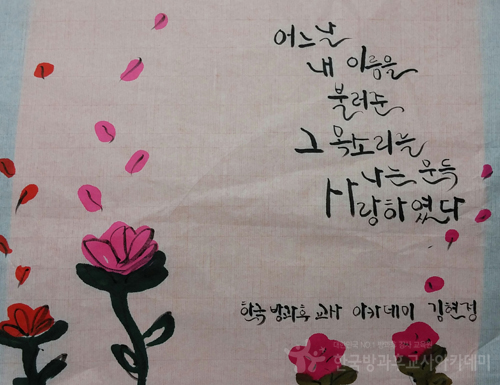 어느날
내 이름을
불러준
그 목소리를
나는 문득
사랑하였다
한국 방과후 교사 아카데미 김현정
한국방과후교사아카데미